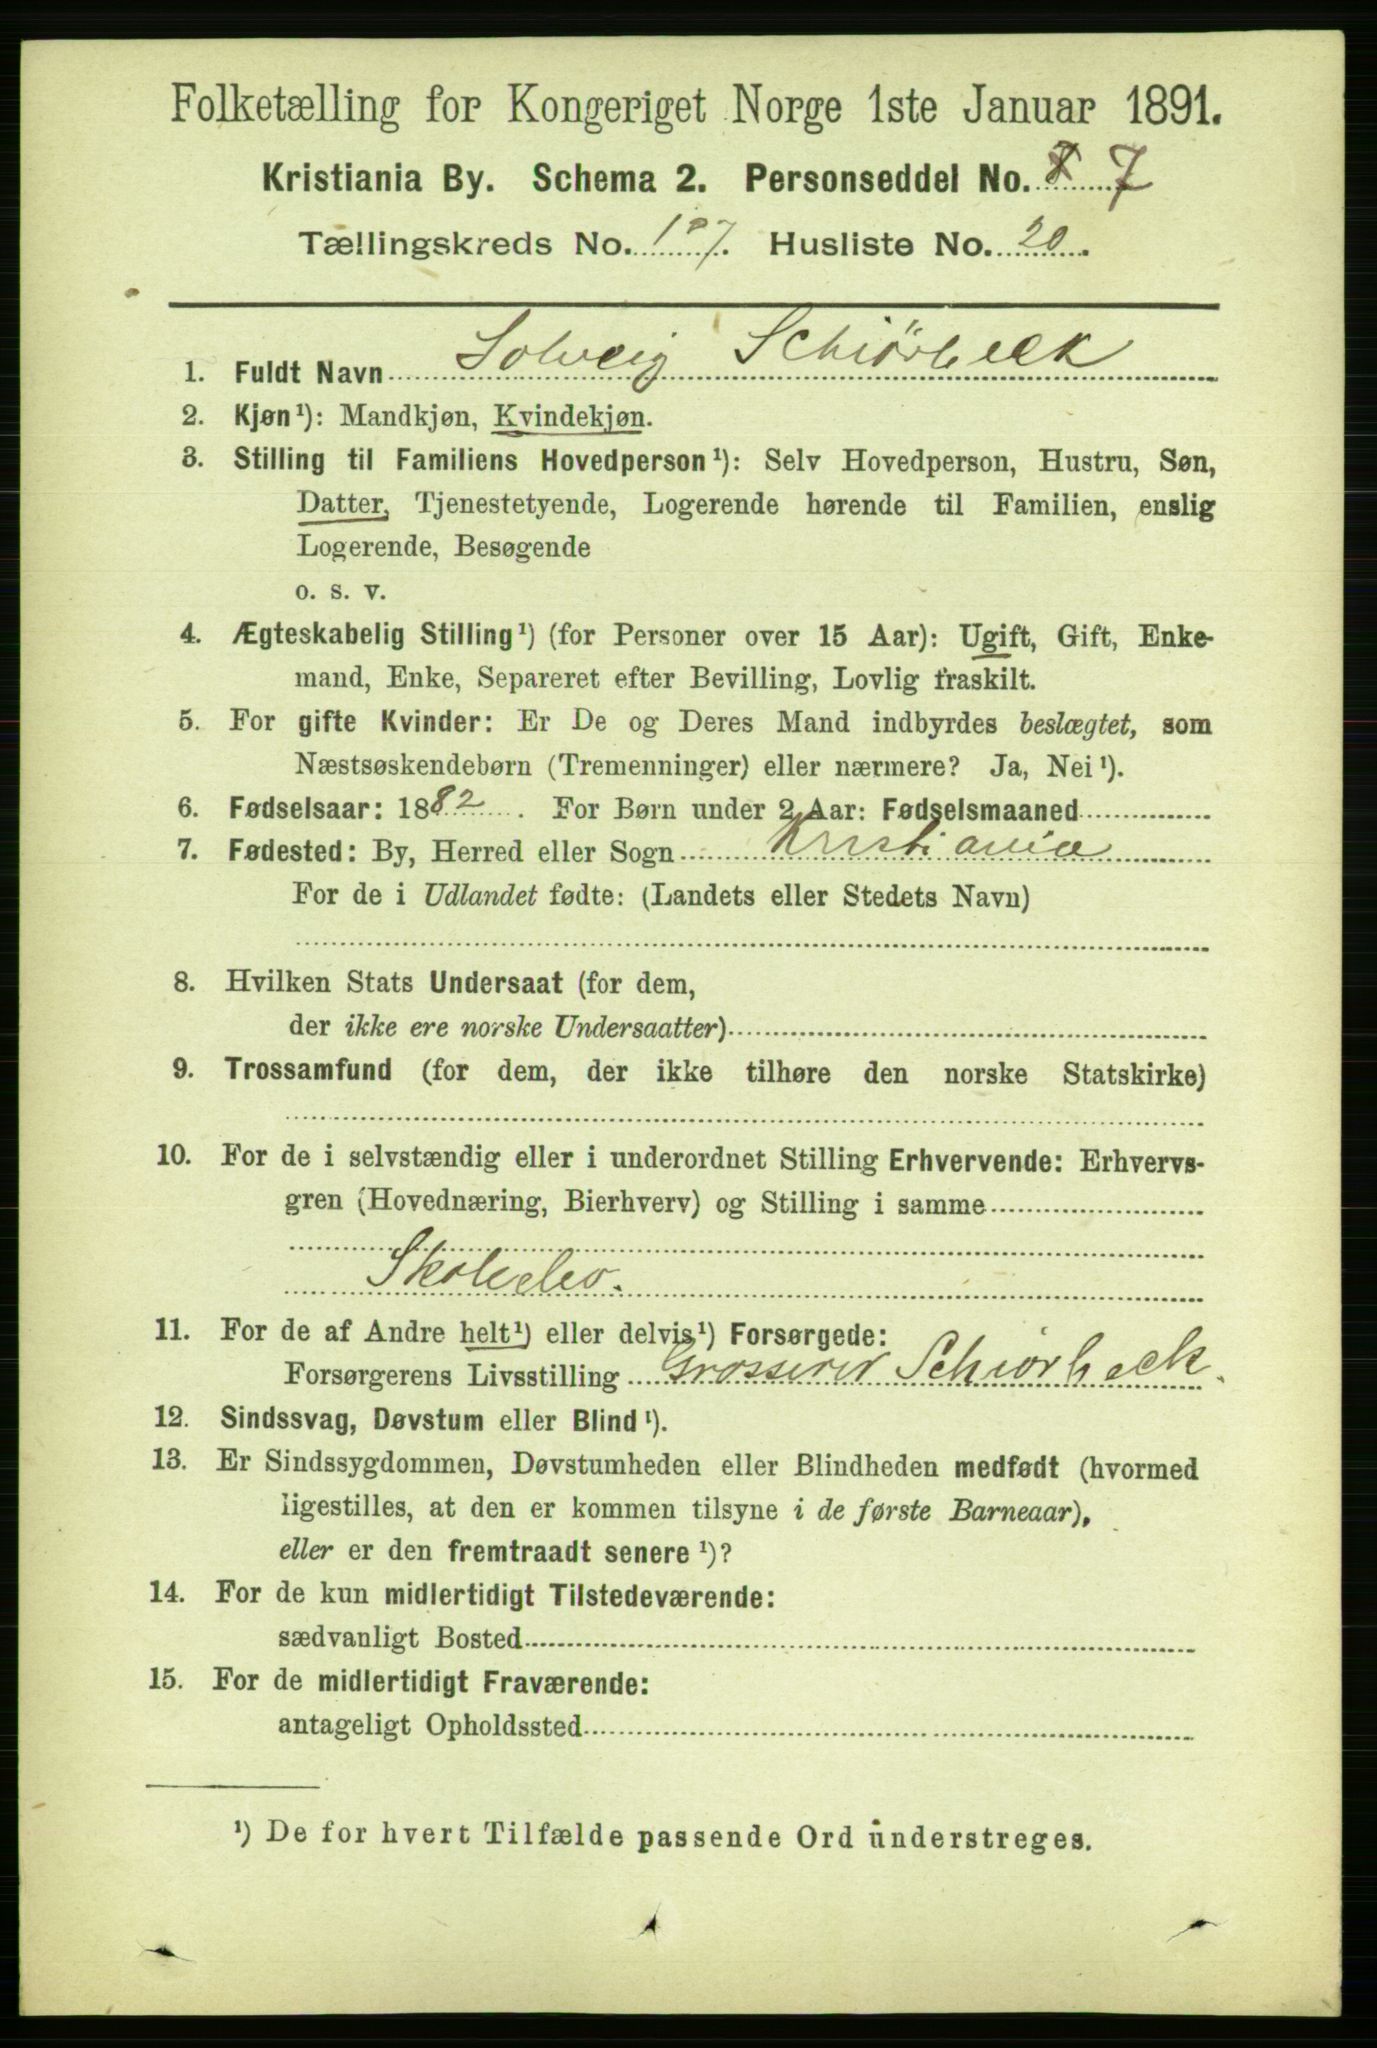 Folketælling for Kongeriget Norge 1ste Januar 1891.
Kristiania By. Schema 2. Personseddel No. 7
Tællingskreds No. 187. Husliste No. 20.
1. Fuldt Navn Solveig Schiörbeck
2. Kjøn¹): Mandkjøn, Kvindekjøn.
3. Stilling til Familiens Hovedperson¹): Selv Hovedperson, Hustru, Søn,
Datter, Tjenestetyende, Logerende hørende til Familien, enslig
Logerende, Besøgende
o. s. v.
4. Ægteskabelig Stilling¹) (for Personer over 15 Aar): Ugift, Gift, Enke-
mand, Enke, Separeret efter Bevilling, Lovlig fraskilt.
5. For gifte Kvinder: Er De og Deres Mand indbyrdes beslægtet, som
Næstsøskendebørn (Tremenninger) eller nærmere? Ja, Nei¹).
6. Fødselsaar: 1882. For Børn under 2 Aar: Fødselsmaaned
7. Fødested: By, Herred eller Sogn Kristiania
For de i Udlandet fødte: (Landets eller Stedets Navn)
8. Hvilken Stats Undersaat (for dem,
der ikke ere norske Undersaatter)
9. Trossamfund (for dem, der ikke tilhøre den norske Statskirke)
10. For de i selvstændig eller i underordnet Stilling Erhvervende: Erhvervs-
gren (Hovednæring, Bierhverv) og Stilling i samme
Skoleelev.
11. For de af Andre helt¹) eller delvis¹) Forsørgede:
Forsørgerens Livsstilling Grosserer Schiörbeck.
12. Sindssvag, Døvstum eller Blind¹).
13. Er Sindssygdommen, Døvstumheden eller Blindheden medfødt (hvormed
ligestilles, at den er kommen tilsyne i de første Barneaar),
eller er den fremtraadt senere¹)?
14. For de kun midlertidigt Tilstedeværende:
sædvanligt Bosted
15. For de midlertidigt Fraværende:
antageligt Opholdssted
¹) De for hvert Tilfælde passende Ord understreges.